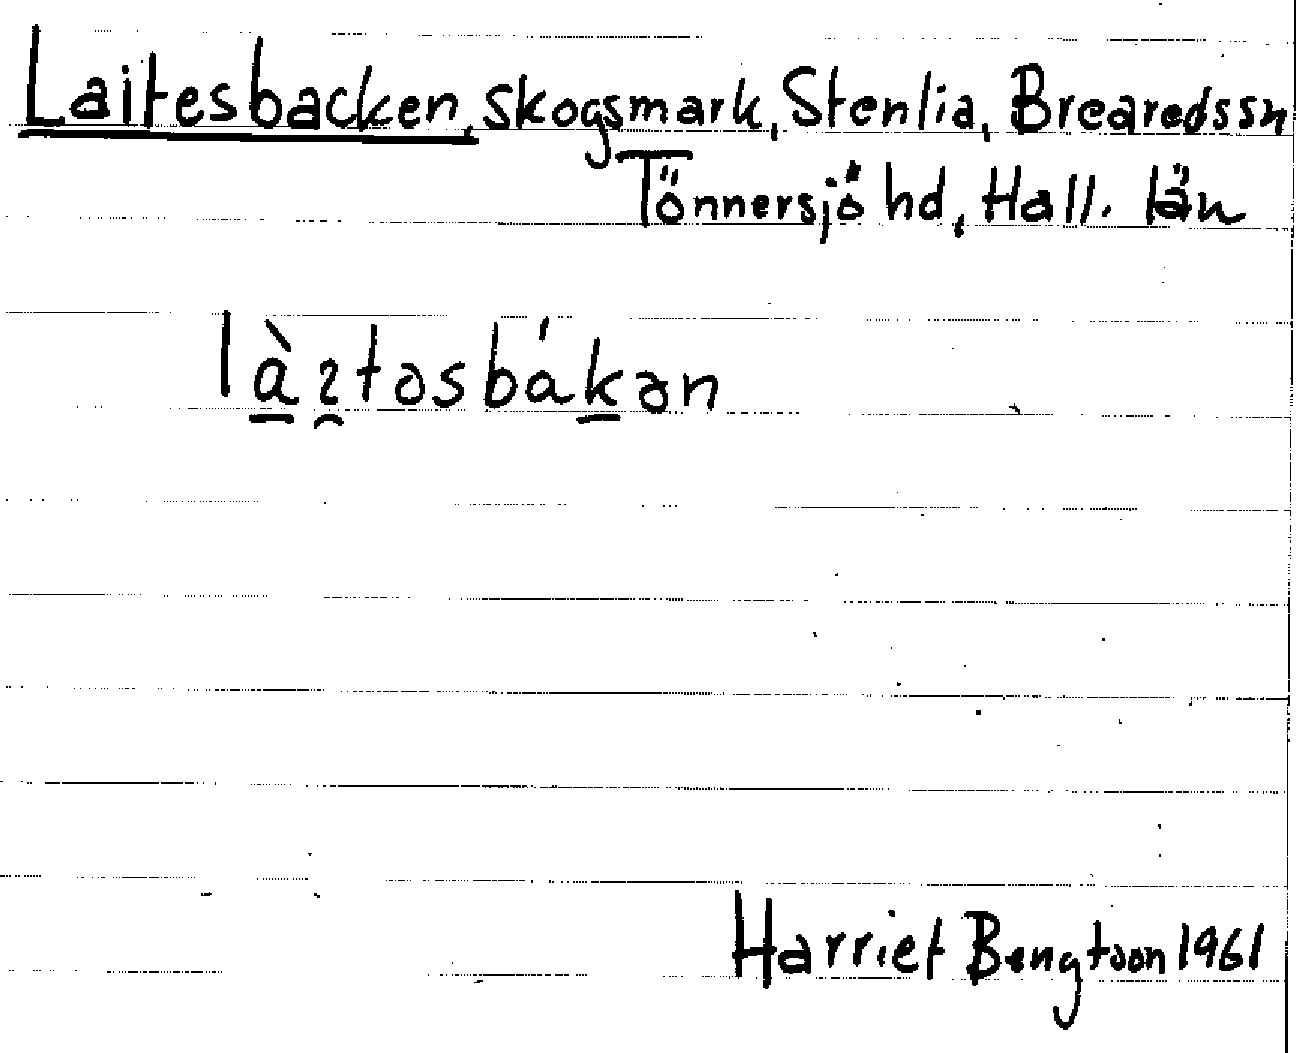 Laitesbacken, skogsmark, Stenlia, Brearedssn
Tönnersjö hd, Hall. län
làƨtəsbákən
Harriet Bengtson 1961